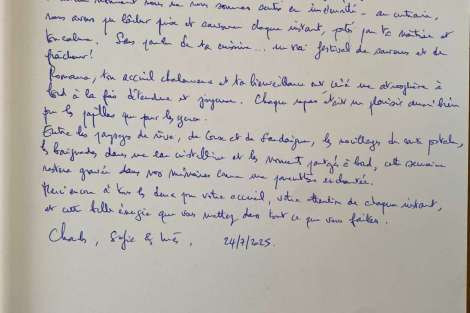 moment nous ne nous sommes sentis en insécurité - au contraire,
nous avons pu lâcher prise et savourer chaque instant, porté par ta maîtrise et
ton calme. Sans parler de ta cuisine... un vrai festival de saveurs et de
fraîcheur!
Romane, ton accueil chaleureux et ta bienveillance ont créé une atmosphère à
bord à la fois détendue et joyeuse. Chaque repas était un plaisir aussi bien
pour les papilles que pour les yeux.
Entre les paysages de rêve, de Corse et de Sardaigne, les mouillages de carte postale,
les baignades dans une eau cristalline et les moments partagés à bord, cette semaine
restera gravée dans nos mémoires comme une parenthèse enchantée.
Merci encore à tous les deux pour votre accueil, votre attention de chaque instant,
et cette belle énergie que vous mettez dans tout ce que vous faites.
Charles, Sofie &, 24/7/2025.